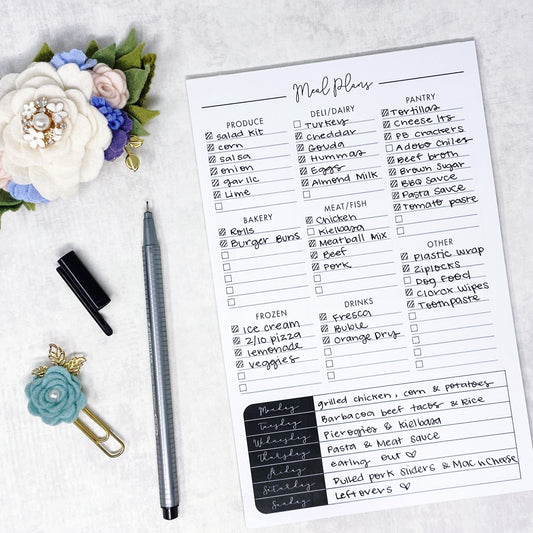 Meal Plans
PRODUCE
Salad Kit
corn
salsa
onion
garlic
Lime
DELI/DAIRY
Turkey
Cheddar
Gouda
Hummas
Eggs
Almond Milk
PANTRY
Tortillas
Cheese Its
PB Crackers
Adobo Chiles
Beef broth
Brown Sugar
BBQ Sauce
Pasta Sauce
Tomato paste
BAKERY
Rolls
Burger Buns
MEAT/FISH
Chicken
Kielbasa
Meatball Mix
Beef
Pork
OTHER
Plastic Wrap
Ziplocks
Dog Food
Clorox Wipes
Toothpaste
FROZEN
Ice cream
2/10 pizza
lemonade
veggies
DRINKS
Fresca
Buble
Orange Dry
Monday grilled chicken, corn & potatoes
Tuesday Barbacoa beef tacos & Rice
Wednesday Pierogies & Kielbasa
Thursday Pasta & Meat Sauce
Friday eating out ♡
Saturday Pulled pork Sliders & Mac n Cheese
Sunday Leftovers ♡